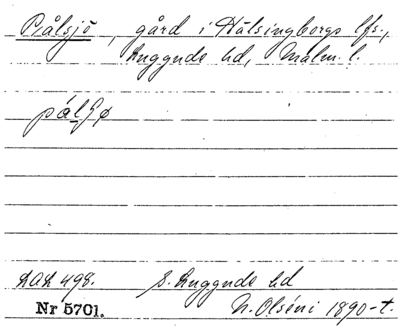 Pålsjö, gård i Hälsingborgs lfs.,
Luggude hd, Malm. l.
pálʃø
LAL 498. S. Luggude hd
Nr 5701. N. Olséni 1890-t.